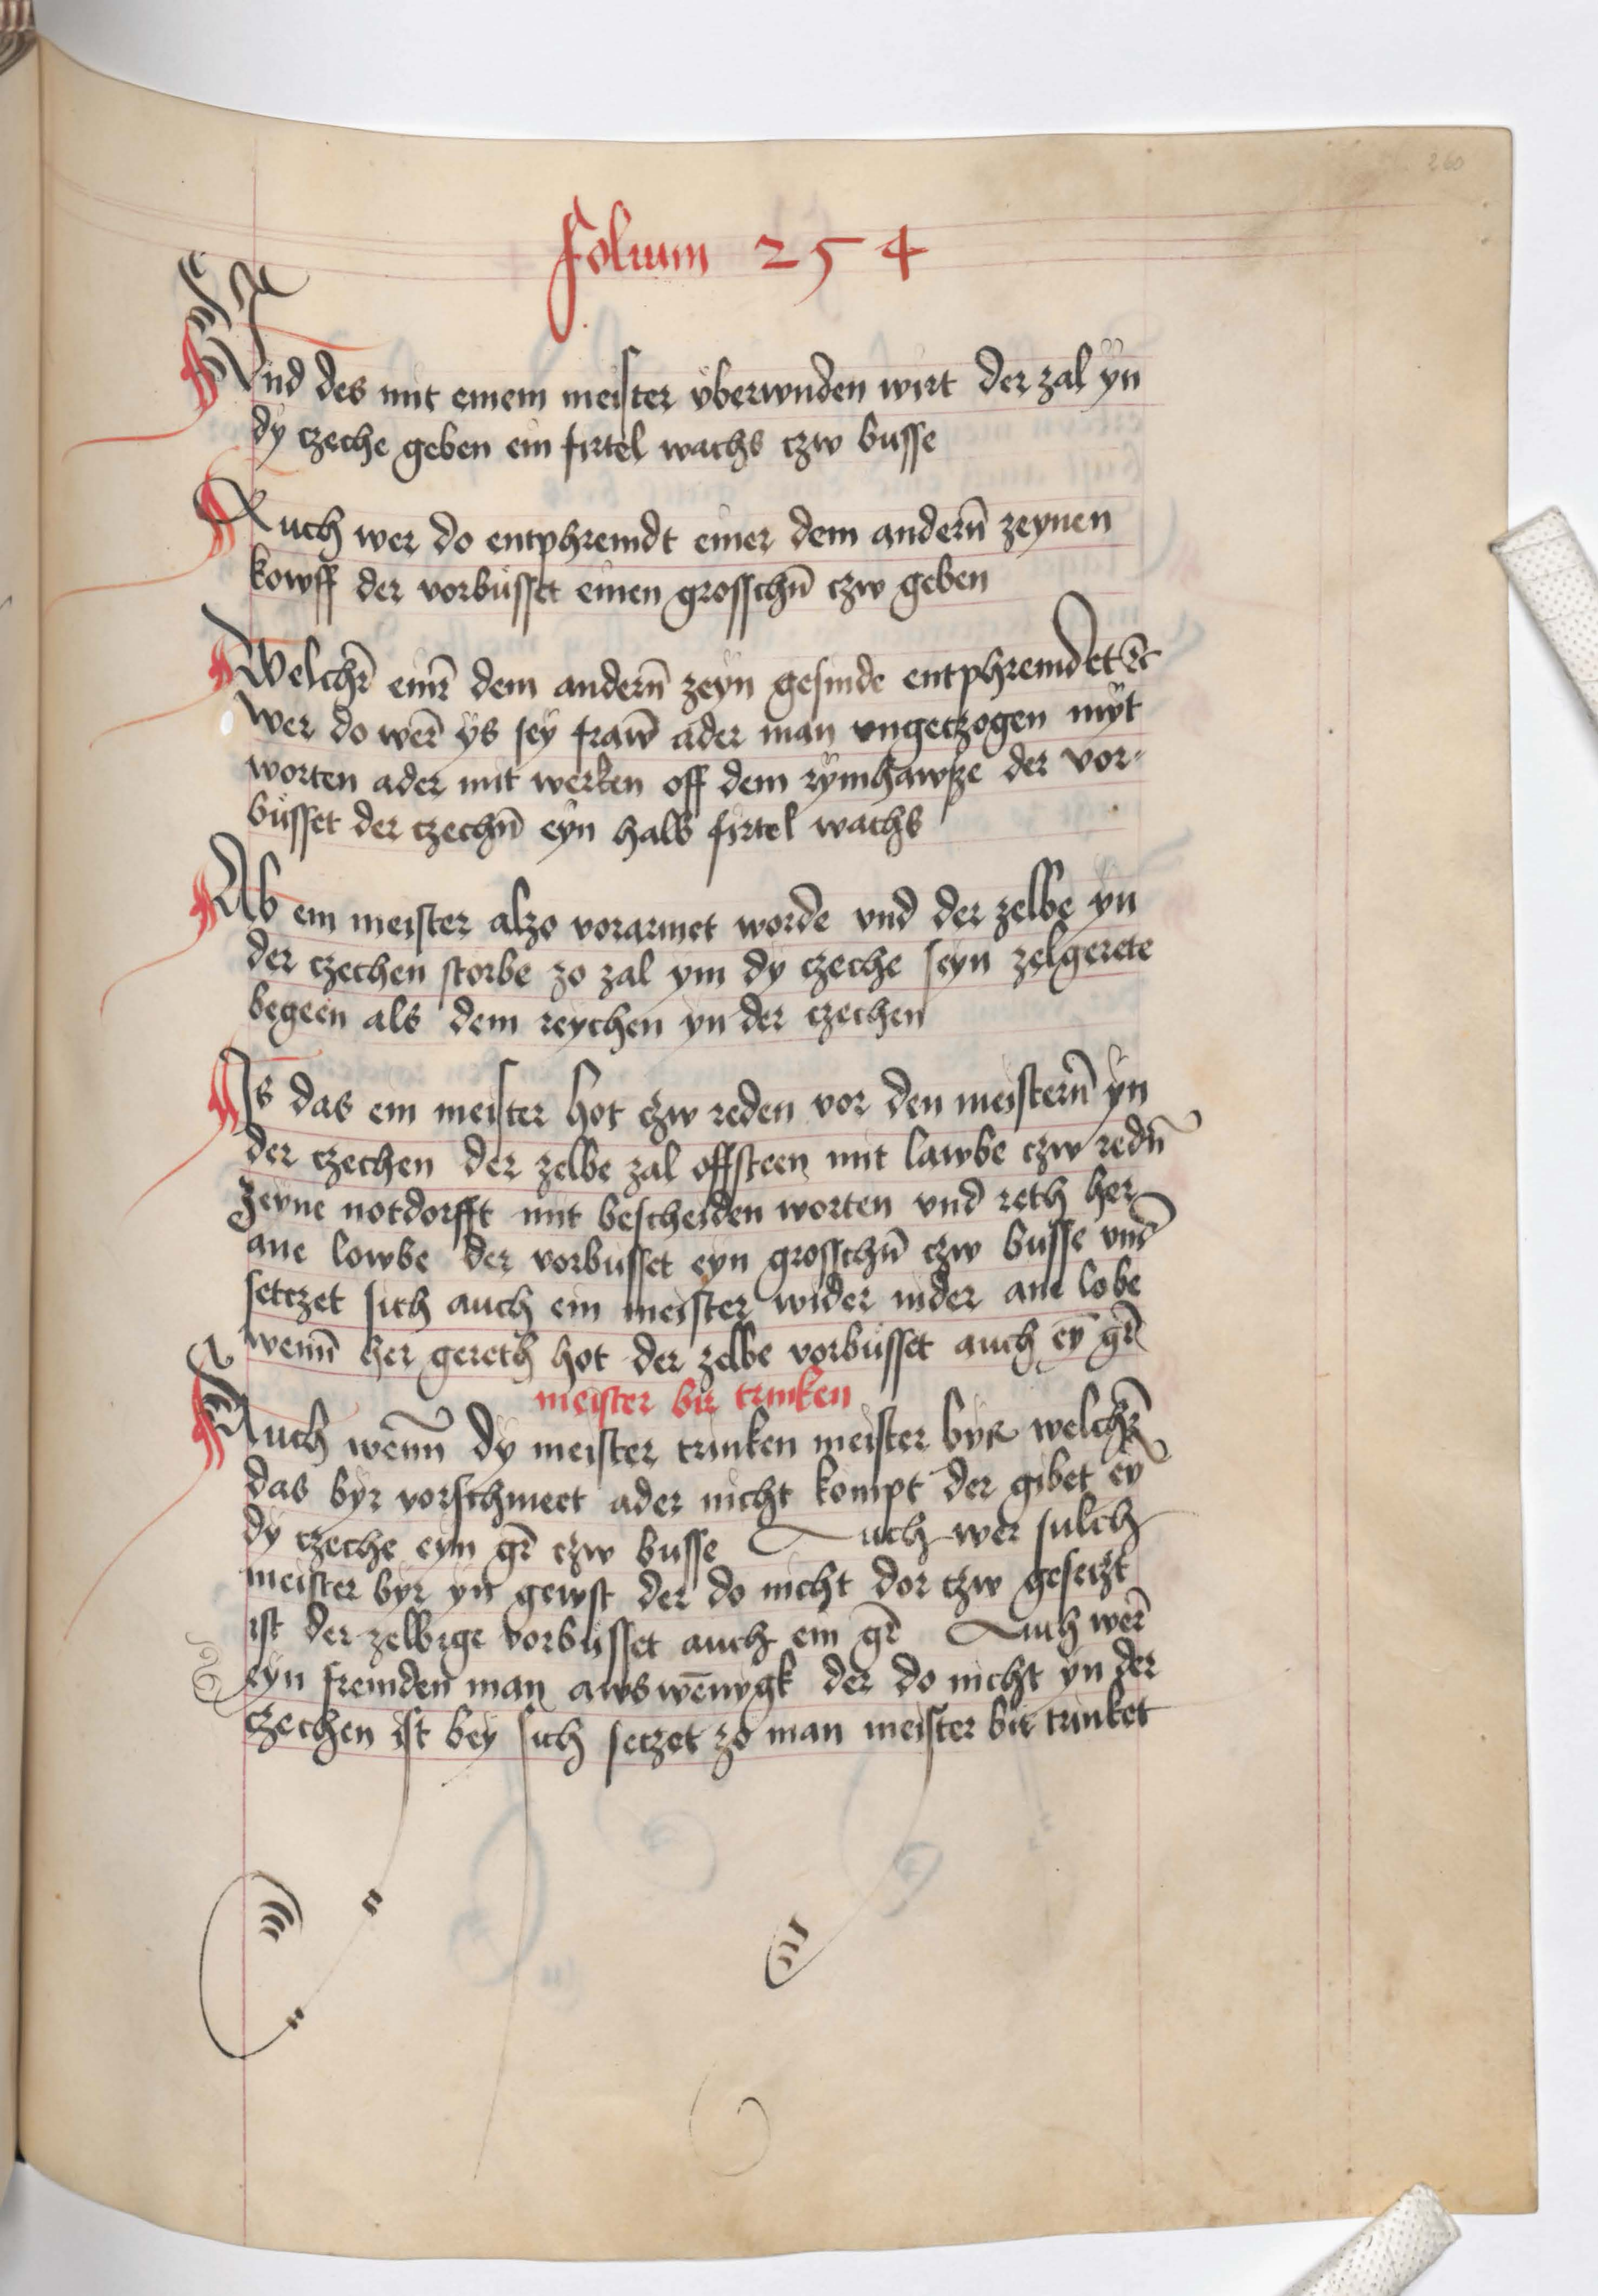 260
Folium 254
Vnd des mit einem meister vberwnden wirt der zal yn
dy czeche geben ein firtel wachs czw busse
Auch wer do entphremdt einer dem andern̄ zeynen
kowff der vorbüsset einen grosschn̄ czw geben
Welchr̄ einr̄ dem andern̄ zeyn gesinde entphremdet ⁊c
Wer do wer̄ ys sey fraw̄ ader man vngeczogen myt
worten ader mit werken off dem rymhawße der vor-
büsset der czechn̄ eyn halb firtel wachs
Ab ein meister alzo vorarmet worde vnd der zelbe yn
der czechen storbe zo zal ym dy czeche seyn zelgerete
begeen als dem reychen yn der czechen
Is das ein meister hot czw reden vor den meistern̄ yn
der czechen der zelbe zal offsteen mit lawbe czw redn̄
zeyne notdorfft mit bescheiden worten vnd reth her
ane lowbe der vorbusset eyn grosschn̄ czw busse vnd
setczet sich auch ein meister wider nider ane lobe
wenn̄ her gereth hot der zelbe vorbüsset auch eȳ gr̄
meister bir trinken
Auch wenn̄ dy meister trinken meister byr welchr̄
das byr vorschmeet ader nicht kompt der gibet eȳ
dy czeche eyn gr̄ czw busse Auch wer sulch
meister byr yn gewst der do nicht dor czw geseczt
ist der zelbige vorbüsset auch ein gr̄ Auch wer̄
eyn fremden man awswēnygk der do nicht yn der
czechen ist bey sich seczet zo man meister bir trinket